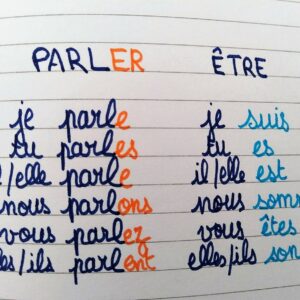 PARLER ÊTRE
je parle je suis
tu parles tu es
il/elle parle il/elle est
nous parlons nous somm
vous parlez vous êtes
les/ils parlent elles/ils son